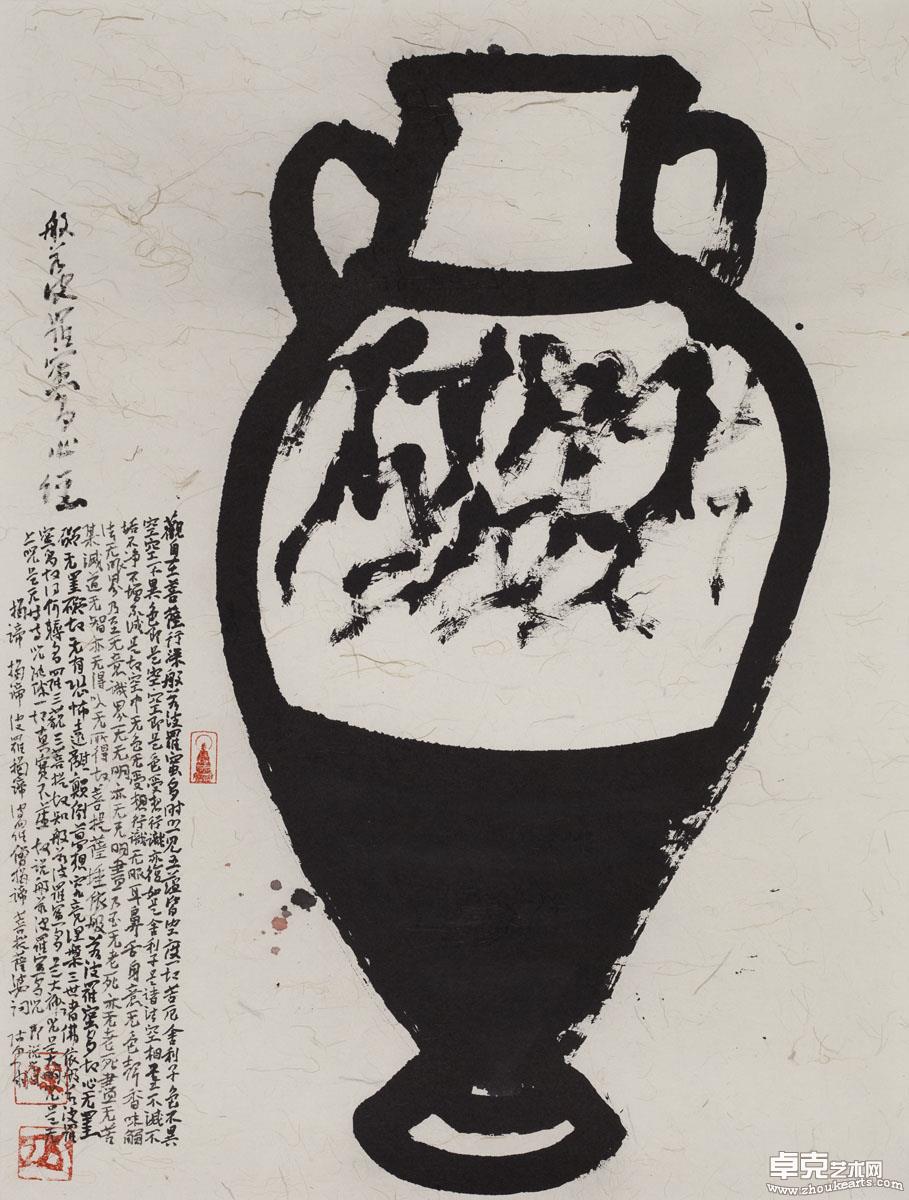 般若波羅蜜多心經
觀自在菩薩行深般若波羅蜜多時照見五蘊皆空度一切苦厄舍利子色不異
空空不異色即是空空即是色受想行識亦復如是舍利子是諸法空相不生不滅不
垢不淨不增不減是故空中无色无受想行識无眼耳鼻舌身意无色聲香味觸
法无眼界乃至无意識界无无明亦无无明盡乃至无老死亦无老死盡无苦
集滅道无智亦无得以无所得故菩提薩埵依般若波羅蜜多故心无罣
礙无罣礙故无有恐怖遠離顛倒夢想究竟涅槃三世諸佛依般若波羅
蜜多故得阿耨多羅三藐三菩提故知般若波羅蜜多是大神咒是大明咒是无
上咒是无等等咒能除一切真實不虛故說般若波羅蜜多咒即說咒曰
揭諦 揭諦 波羅揭諦 波羅僧揭諦 菩提薩婆訶
卓克艺术网
www.zhoukearts.com